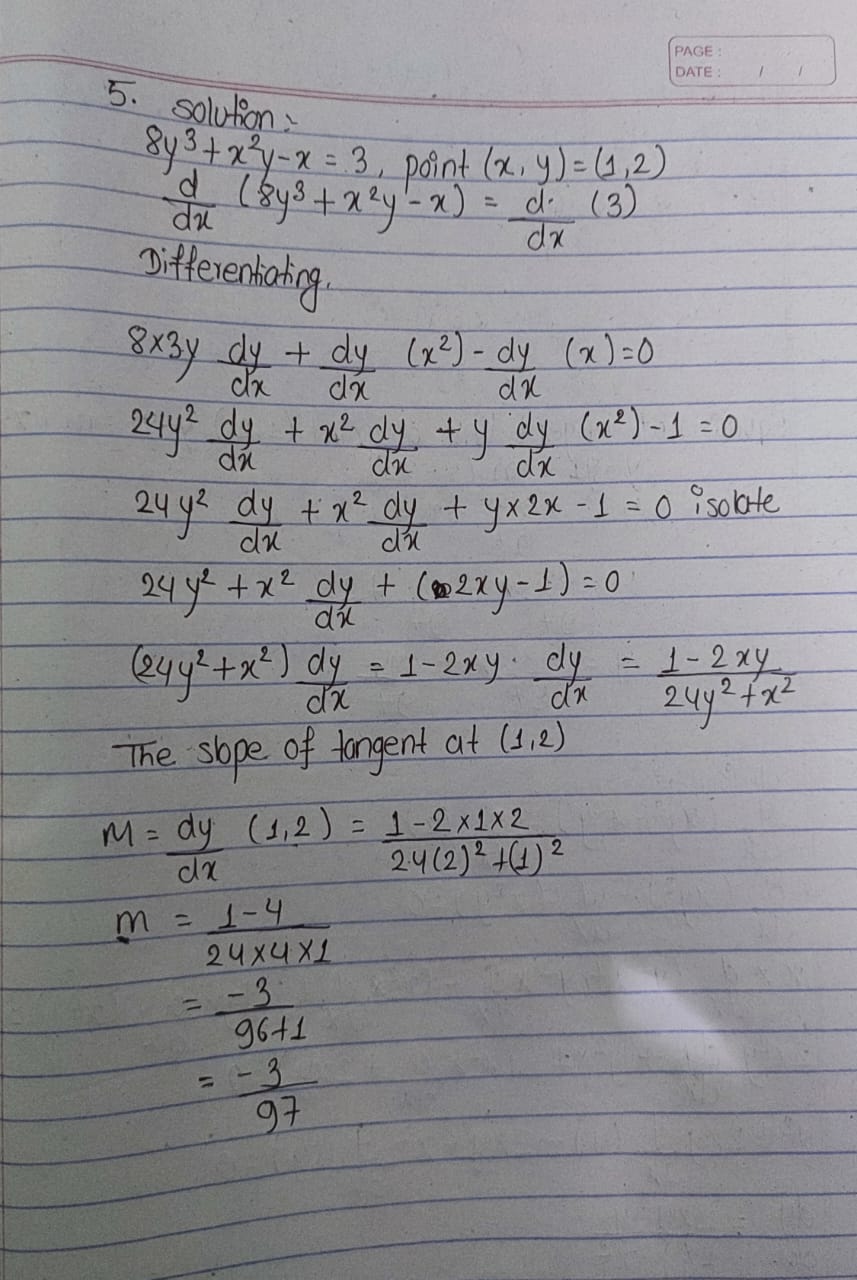 PAGE :
DATE : / /
5. solution :-
8y³ + x²y - x = 3, point (x, y) = (1, 2)
d/dx (8y³ + x²y - x) = d/dx (3)
Differentiating.
8×3y dy/dx + dy/dx (x²) - dy/dx (x) = 0
24y² dy/dx + x² dy/dx + y dy/dx (x²) - 1 = 0
24y² dy/dx + x² dy/dx + y×2x - 1 = 0 isolate
24y² + x² dy/dx + (2xy - 1) = 0
(24y² + x²) dy/dx = 1 - 2xy. dy/dx = 1 - 2xy/24y² + x²
The slope of tangent at (1,2)
M = dy/dx (1,2) = 1 - 2×1×2/24(2)² + (1)²
m = 1-4/24×4×1
= -3/96+1
= -3/97